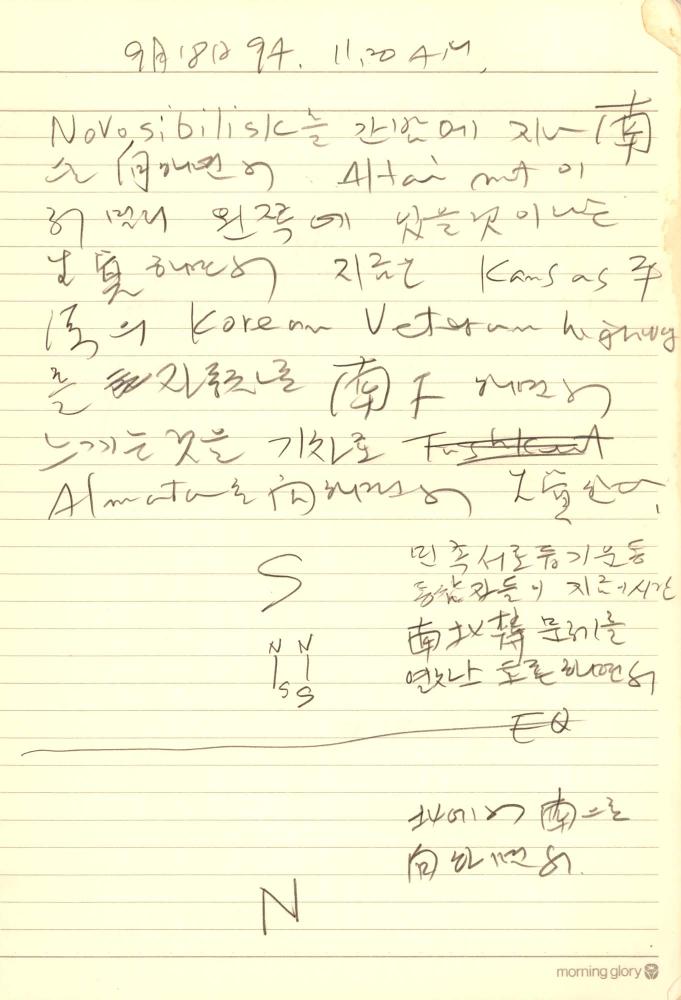 9月18日 94. 11.20 AM.
Novosibilisk를 간밤에 지나 南
으로 向하면서 Altai mt 이
저 멀리 왼쪽에 있을것이나는
生覺하면서 지금은 Kansas 주
의 Korean Veteran highway
를 지름길로 南下 하면서
느끼는 것을 기차로 Tashkent
Almata로 向하면서 生覺한다.
S
민족서로돕기운동
동참자들이 지금 이시간
N N
南北韓 문제를
S S
열차속 토론하면서
EQ
北에서 南으로
向하면서.
N
morning glory